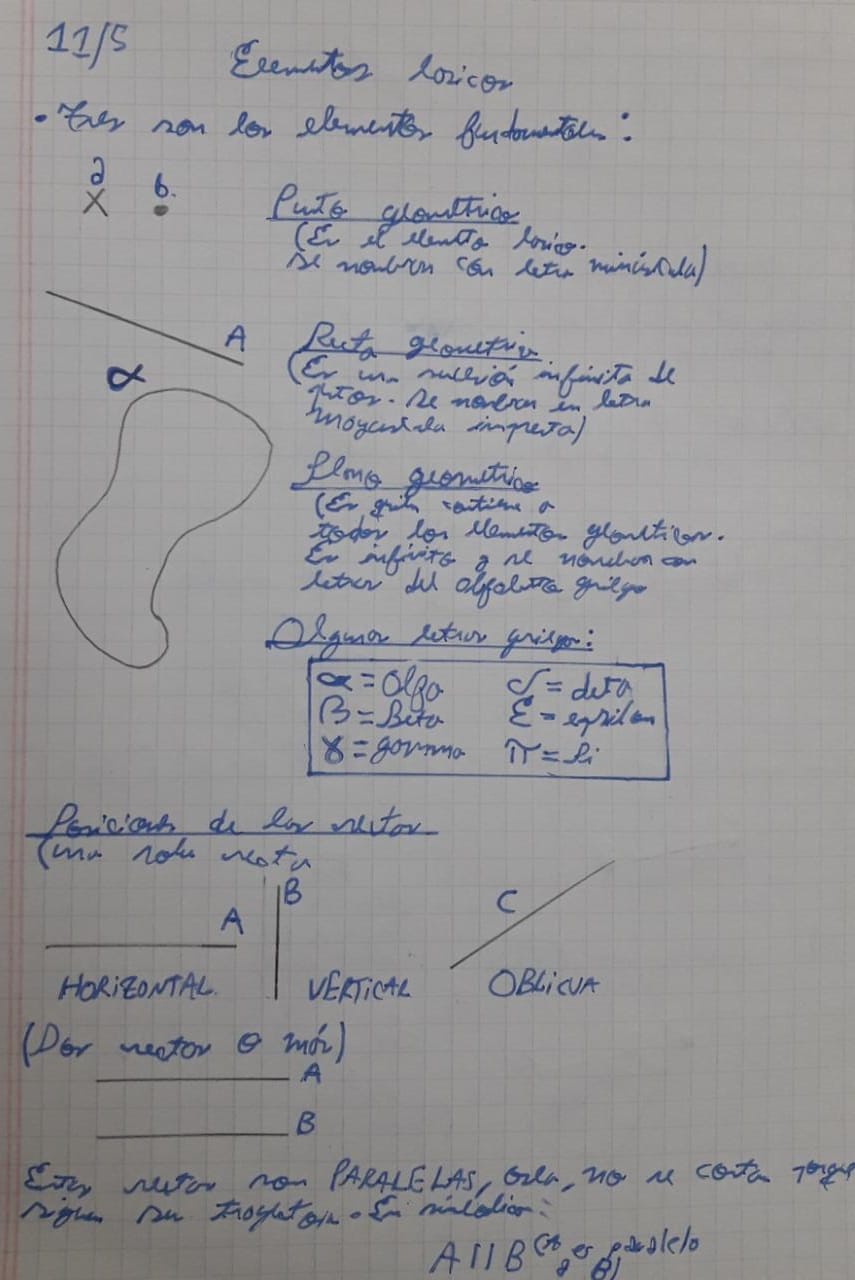 11/5
Elementos basicos
• Tres son los elementos fundamentales:
a b.
Punto geometrico
(Es el elemento basico.
Se nombran con letra minúscula)
A
Recta geometrica
(Es una sucesión infinita de
α
ptos. Se nombran en letra
mayuscula imprenta)
Plano geometrico
(Es quien contiene a
todos los elementos geometricos.
Es infinito y se nombran con
letras del alfabeto griego
Algunas letras griegas:
α = alfa δ = delta
β = Beta ε = epsilon
γ = gamma π = Pi
Posiciones de las rectas
(una sola recta
A B C
HORIZONTAL. VERTICAL OBLICUA
(Dos rectas o más)
A
B
Estas rectas son PARALELAS, osea, no se cortan porque
siguen su trayectoria. En simbolico:
A || B (A es paralelo a B)